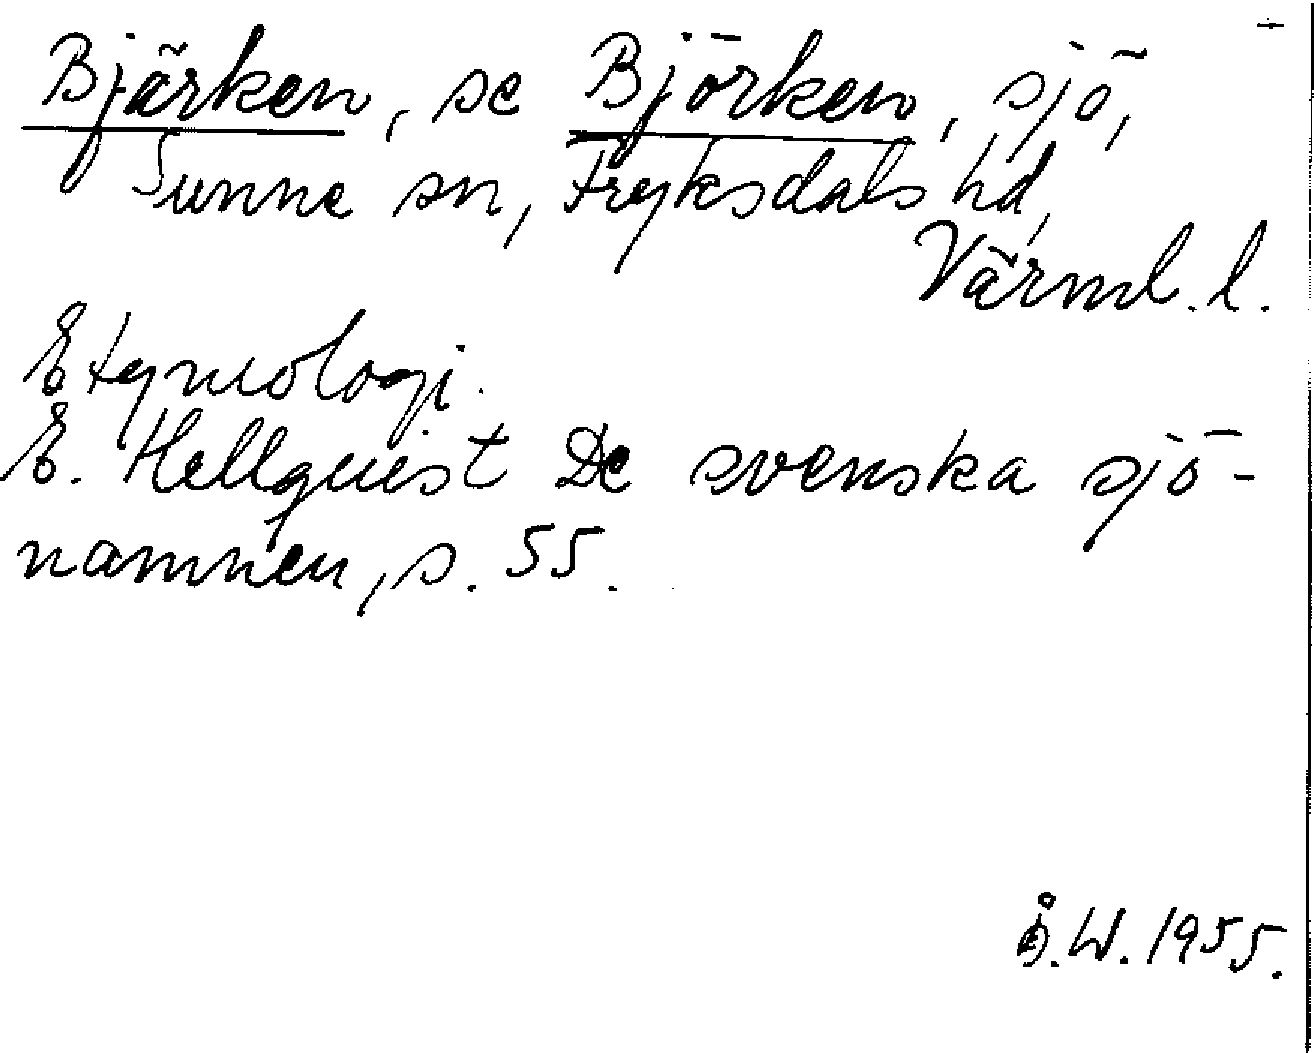 Bjärken, se Björken, sjö,
Sunne sn, Fryksdals hd,
Värml. l.
Etymologi.
E. Hellquist De svenska sjö-
namnen, s. 55.
Å.W. 1955.